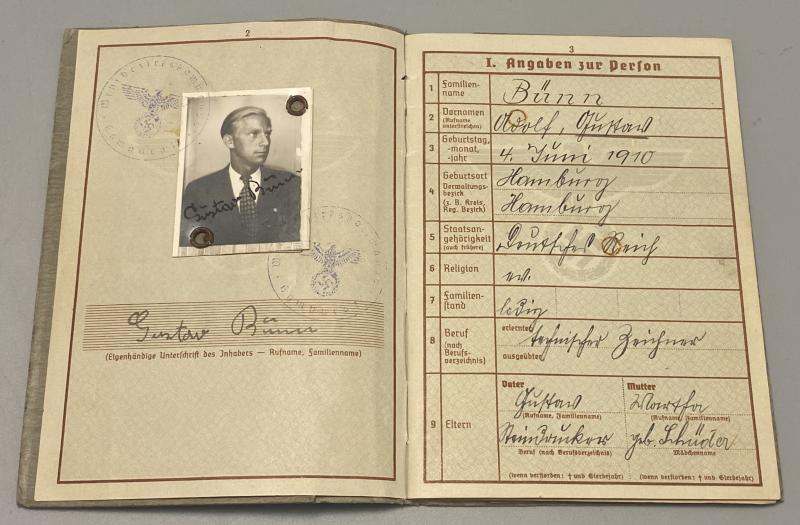 2
Gustav Bünn
Gustav Bünn
(Eigenhändige Unterschrift des Inhabers — Rufname, Familienname)
3
I. Angaben zur Person
1 Familien-
name
Bünn
2 Vornamen
(Rufname
unterstreichen)
Adolf, Gustav
3 Geburtstag,
-monat,
-jahr
4. Juni 1910
4 Geburtsort
Verwaltungs-
bezirk
(z. B. Kreis,
Reg. Bezirk)
Hamburg
Hamburg
5 Staatsan-
gehörigkeit
(auch frühere)
Deutsches Reich
6 Religion
ev.
7 Familien-
stand
ledig
8 Beruf
(nach
Berufs-
verzeichnis)
erlernter
technischer Zeichner
ausgeübter
9 Eltern
Vater
Gustav
(Rufname, Familienname)
Steindrucker
Beruf (nach Berufsverzeichnis)
(wenn verstorben: † und Sterbejahr)
Mutter
Martha
(Rufname, Familienname)
geb. Schüder
Mädchenname
(wenn verstorben: † und Sterbejahr)